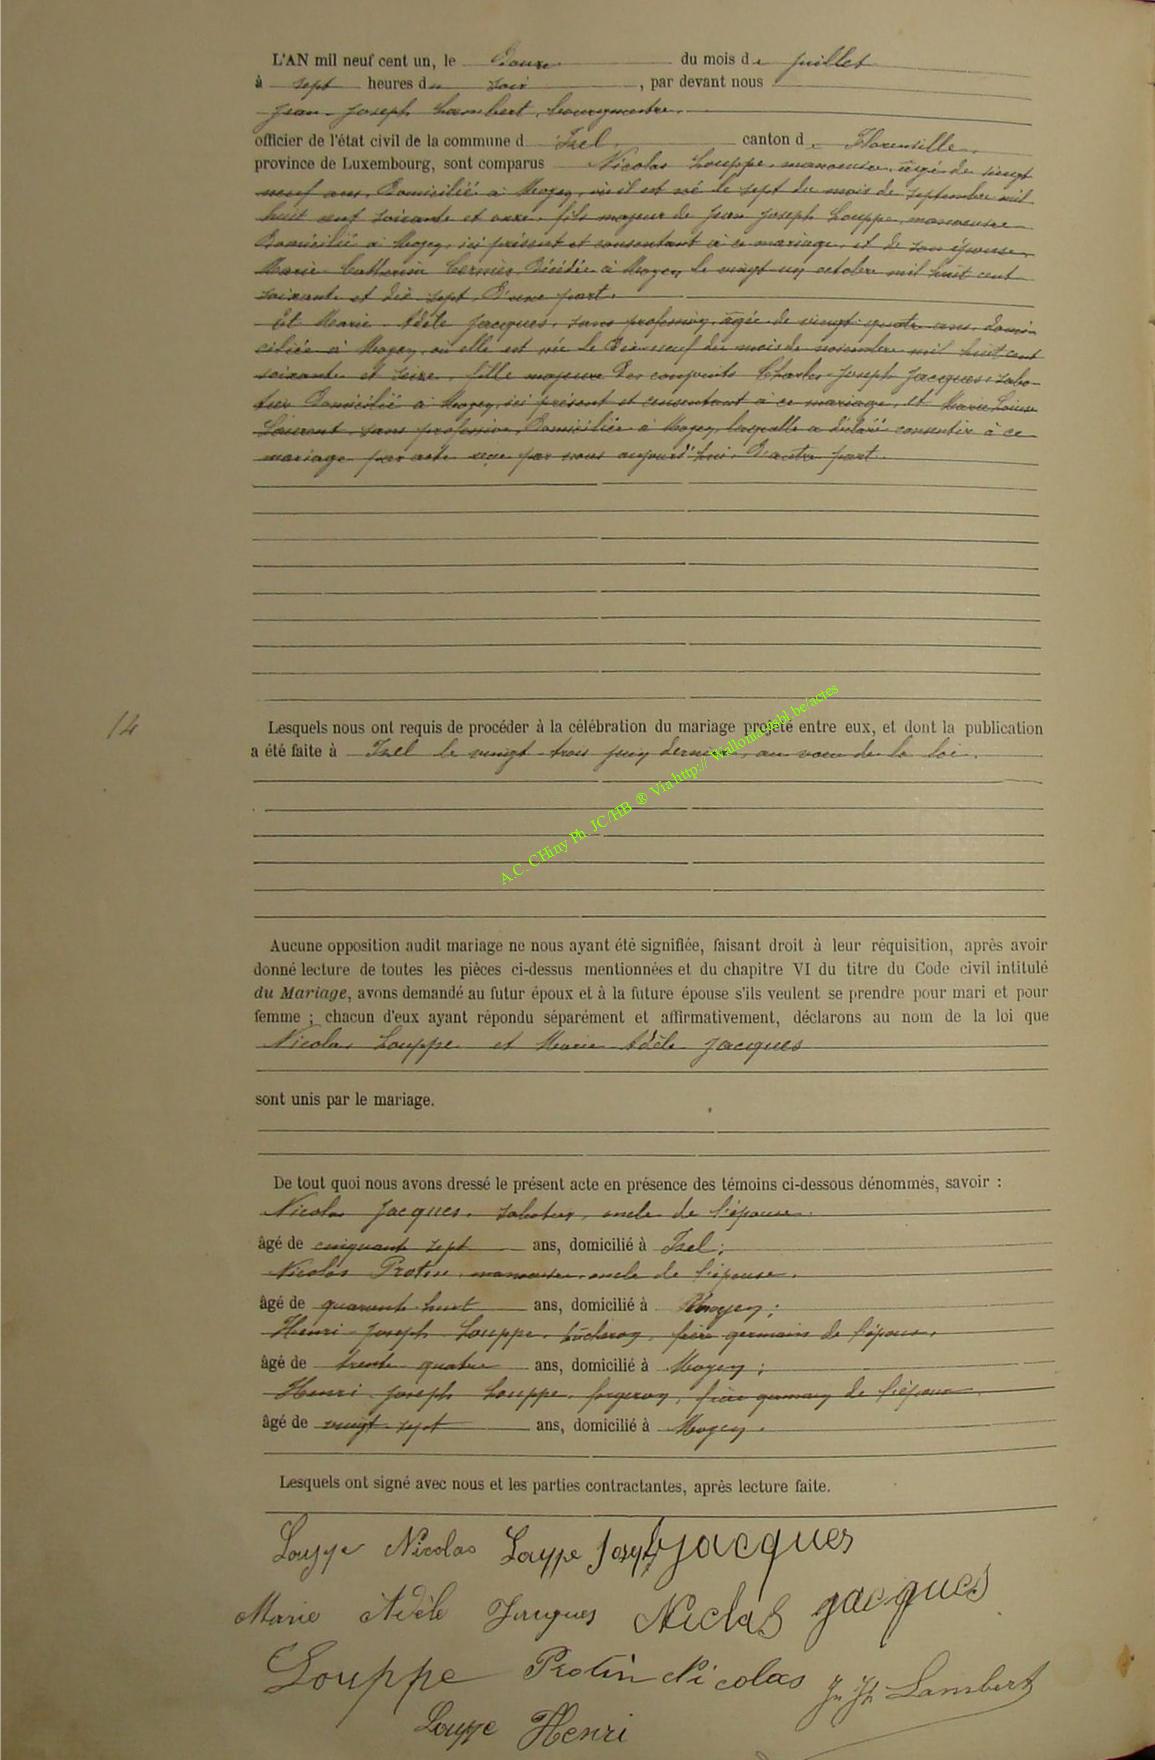 L'AN mil neuf cent un, le Douze du mois de juillet
à sept heures du soir, par devant nous
Jean-Joseph Lambert, bourgmestre,
officier de l'état civil de la commune d Izel, canton de Florenville,
province de Luxembourg, sont comparus Nicolas Louppe, manoeuvre, âgé de vingt
neuf ans, Domicilié à Moyen, où il est né le sept du mois de septembre mil
huit cent soixante et onze, fils majeur de Jean Joseph Louppe, manoeuvre
Domicilié à Moyen, ici présent et consentant à ce mariage, et de son épouse,
Marie Catherine Décédée à Moyen le vingt un octobre mil huit cent
soixante et dix sept, D'une part.
Et Marie Adèle Jacques, sans profession, âgée de vingt quatre ans, domi-
ciliée à Moyen, où elle est née le Dix neuf du mois de novembre mil huit cent
soixante et seize, fille majeure Des conjoints Charles Joseph Jacques, sabo-
tier Domicilié à Moyen, ici présent et consentant à ce mariage, et Marie Louise
Laurent, sans profession, Domiciliée à Moyen, laquelle a déclaré consentir à ce
mariage par acte reçu par nous aujourd'hui. D'autre part.
14
Lesquels nous ont requis de procéder à la célébration du mariage projeté entre eux, et dont la publication
a été faite à Izel le vingt-trois juin dernier, au voeu de la loi.
A.C. CHiny Ph JC/HB ® Via http://Wallonia asbl.be/actes
Aucune opposition audit mariage ne nous ayant été signifiée, faisant droit à leur réquisition, après avoir
donné lecture de toutes les pièces ci-dessus mentionnées et du chapitre VI du titre du Code civil intitulé
du Mariage, avons demandé au futur époux et à la future épouse s'ils veulent se prendre pour mari et pour
femme ; chacun d'eux ayant répondu séparément et affirmativement, déclarons au nom de la loi que
Nicolas Louppe et Marie Adèle Jacques
sont unis par le mariage.
De tout quoi nous avons dressé le présent acte en présence des témoins ci-dessous dénommés, savoir :
Nicolas Jacques, sabotier, oncle de l'épouse.
âgé de cinquante sept ans, domicilié à Izel ;
Nicolas Protin, manoeuvre, oncle de l'épouse,
âgé de quarante huit ans, domicilié à Moyen ;
Henri-Joseph Louppe, frère germain de l'époux,
âgé de trente quatre ans, domicilié à Moyen ;
Henri Joseph Louppe, forgeron, frère germain de l'époux
âgé de vingt-sept ans, domicilié à Moyen.
Lesquels ont signé avec nous et les parties contractantes, après lecture faite.
Louppe Nicolas Louppe Joseph Jacques
Marie Adèle Jacques Niclas Jacques
Louppe Protin Nicolas Jn Jh Lambert
Louppe Henri